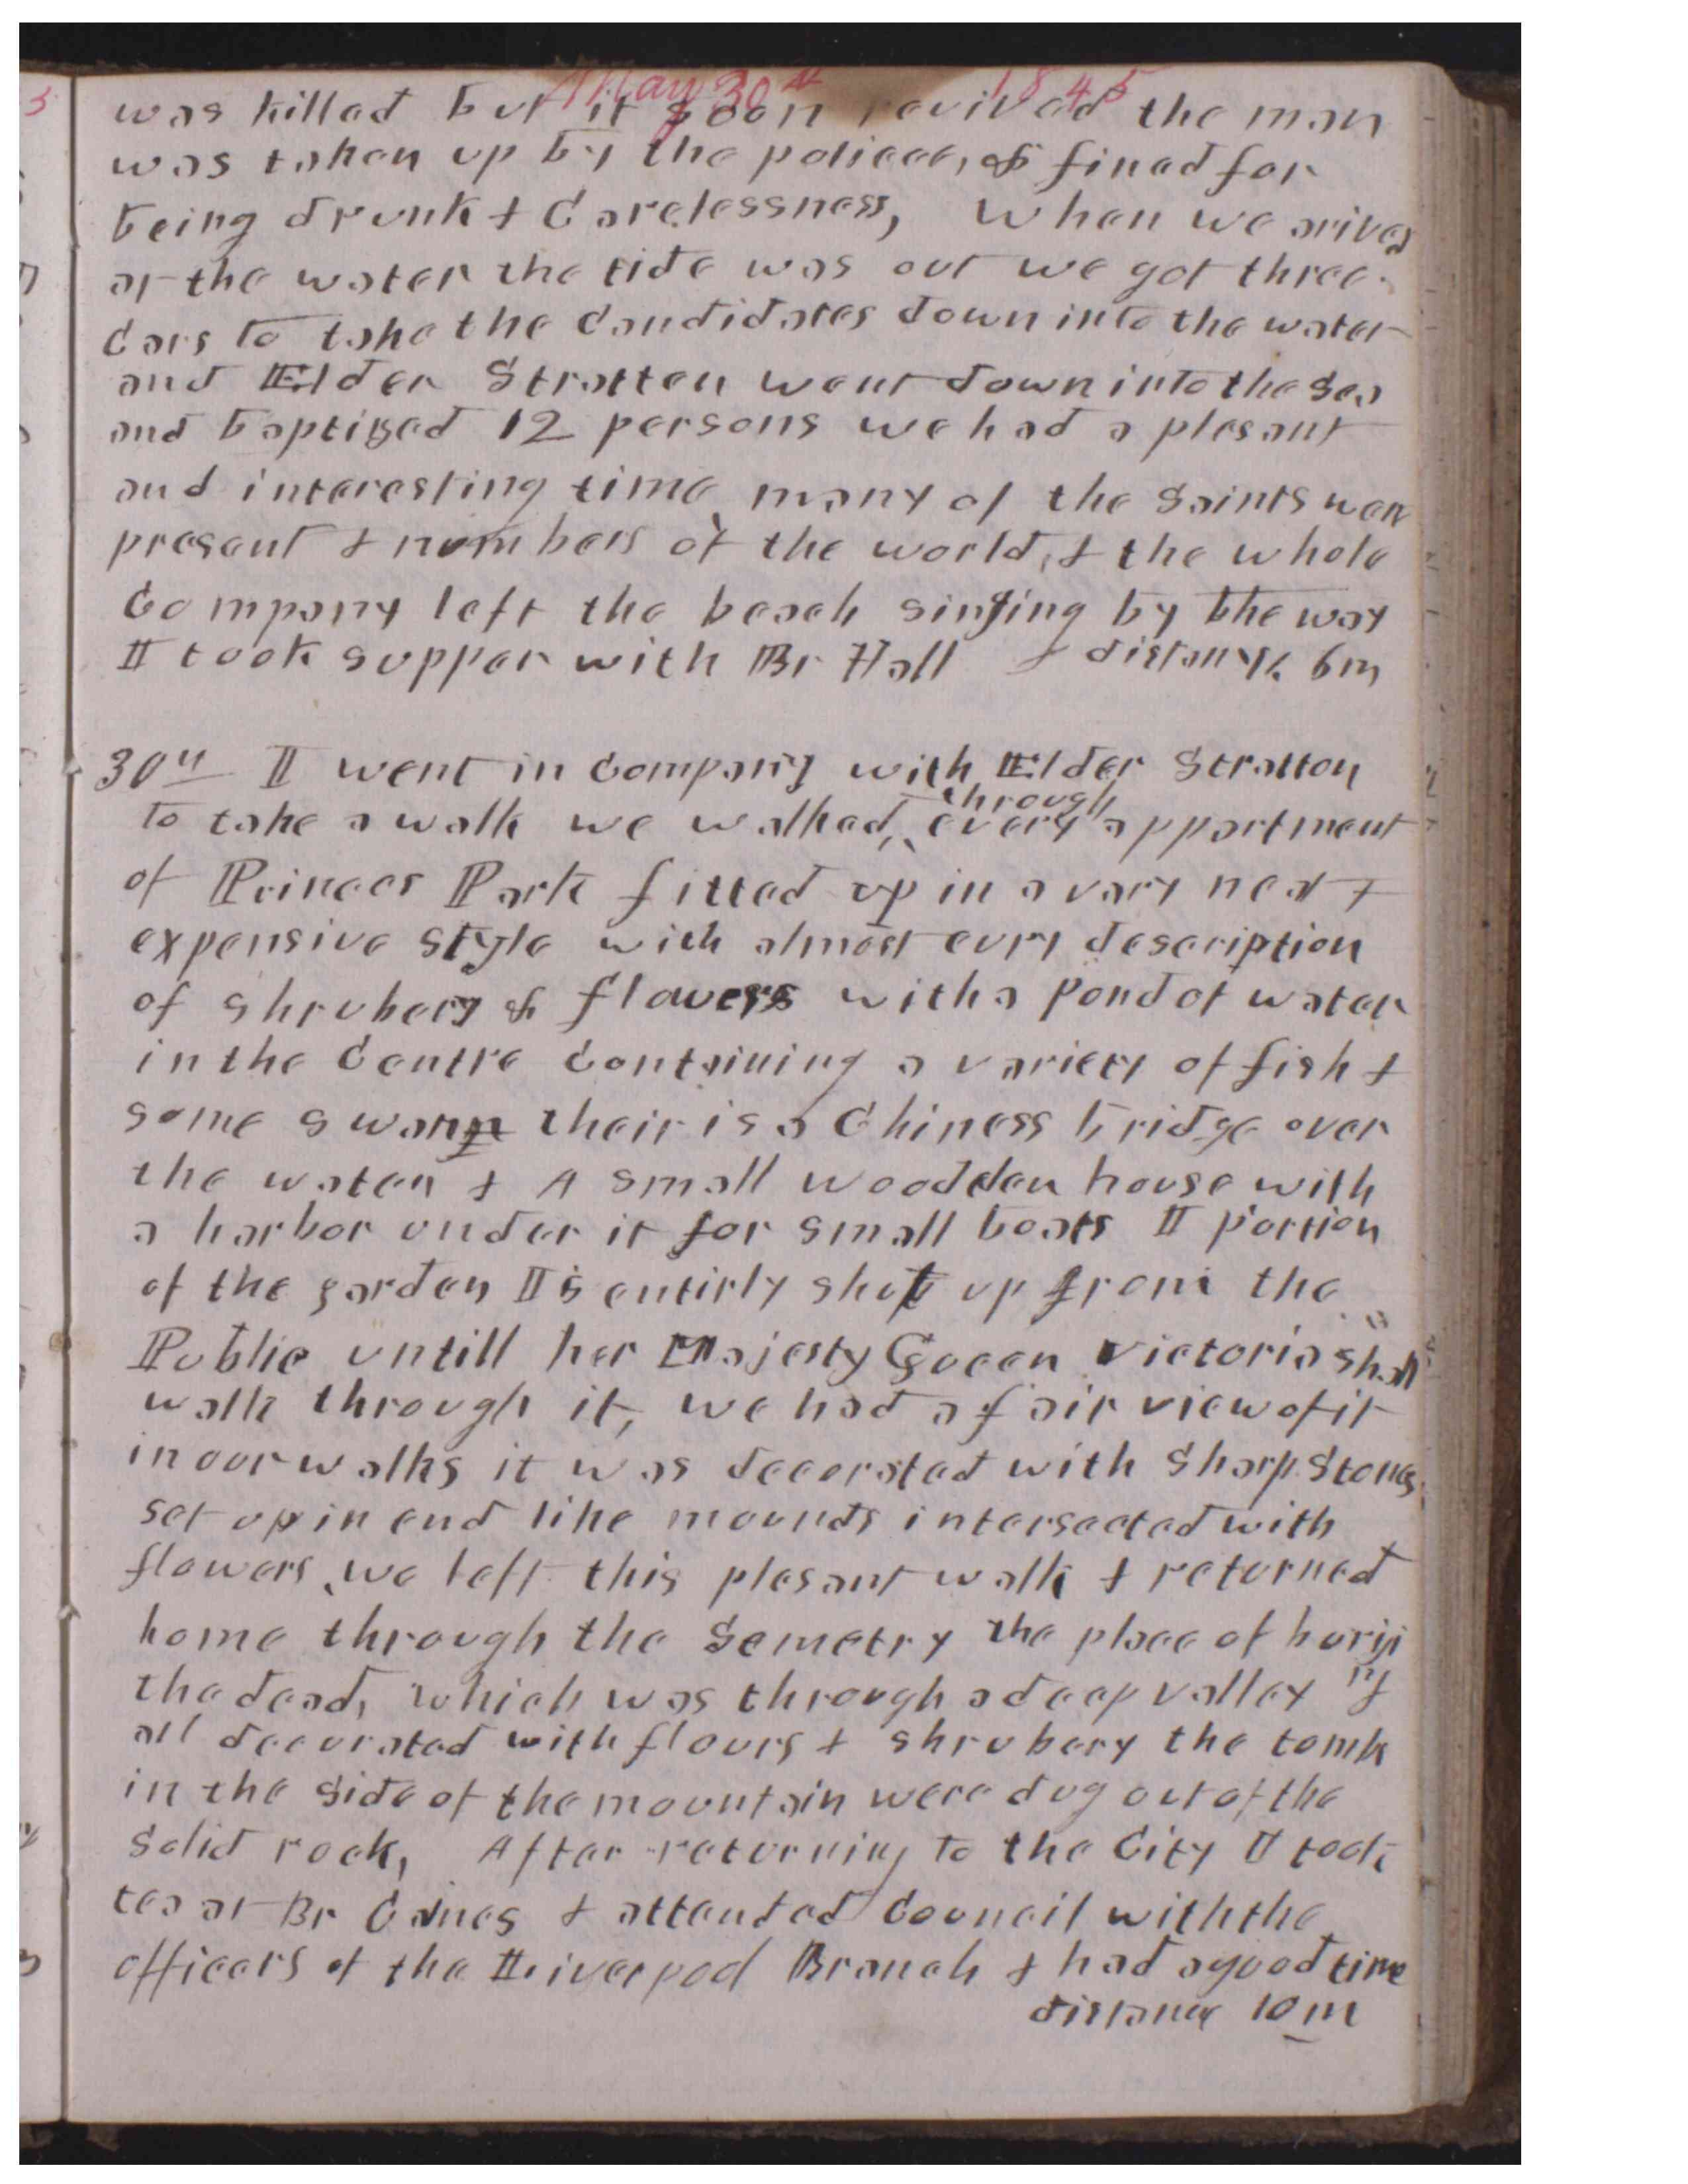 May 30th 1845
was killed but it soon revived the man
was taken up by the policee, & fined for
being drunk & Carelessness, When we arived
at the water the tide was out we got three
Cars to take the Candidates down into the water
and Elder Stratten went down into the Sea
and baptized 12 persons we had a plesant
and interesting time many of the Saints were
present & numbers of the world, & the whole
Company left the beach singing by the way
I took supper with Br Hall & distance 6 m
30th I went in Company with Elder Stratton
through
to take a walk we walked, ^ every appartment
of Princes Park fitted up in a vary neat &
expensive style with almost evry description
of shrubery & flowers with a pond of water
in the Centre Containing a variety of fish &
some swann their is a Chiness bridge over
the water & A small woodden house with
a harbor under it for small boats I portion
of the garden Is entirly shut up from the
Public untill her Majesty Queen Victoria shall
walk through it, we had a fair view of it
in our walks it was decorated with Sharp Stones
set up in end like mounds intersected with
flowers, we left this plesant walk & returned
home through the Semetry the place of burying
the dead, which was through a deep valley
all decorated with flours & shrubery the tombs
in the side of the mountain were dug out of the
Solid rock, After returning to the City I took
tea at Br Caines & attended Council with the
officers of the Liverpool Branch & had a good time
distance 10 m